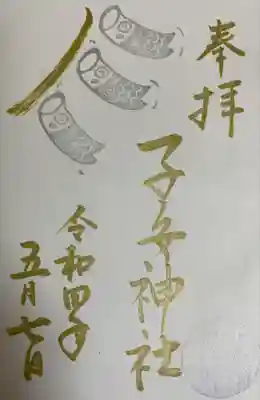 奉拝
子安神社
令和四年
五月七日